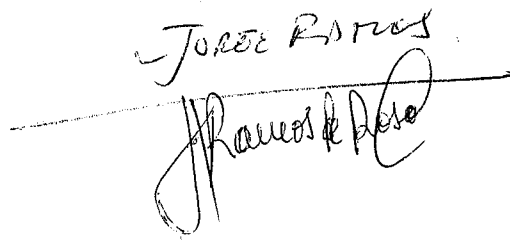 - JORGE RAMOS
JRamos de Rosa